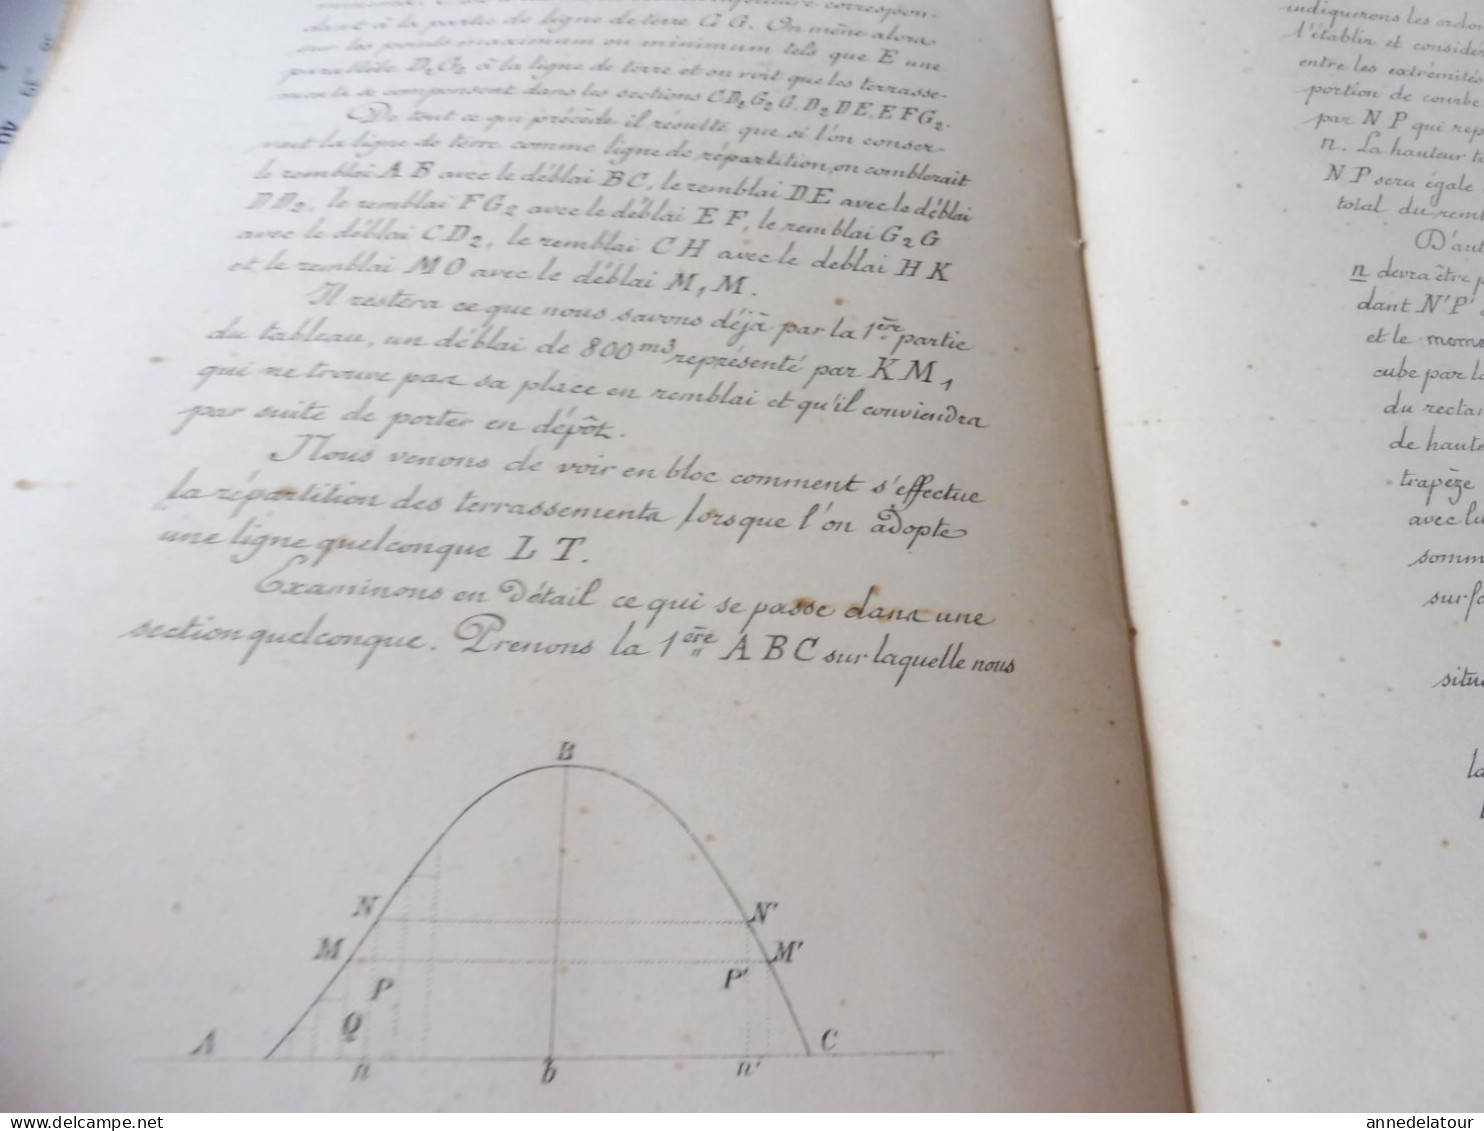 minima. 
dant à la partie de ligne de terre G G. On mène alors
sur les points maximum ou minimum tels que E une
parallèle D₂G₂ à la ligne de terre et on voit que les terrasse-
ments se compensent dans les sections CD₂G₂G, D₂DE, EFG₂.
De tout ce qui précède il résulte que si l'on conser-
vait la ligne de terre comme ligne de répartition, on comblerait
le remblai AB avec le déblai BC, le remblai DE avec le déblai
DD₂, le remblai FG₂ avec le déblai EF, le remblai G₂G
avec le déblai CD₂, le remblai CH avec le deblai HK
et le remblai MO avec le déblai M₁M.
Il restera ce que nous savons déjà par la 1ère partie
du tableau, un déblai de 800m3 représenté par KM₁
qui ne trouve pas sa place en remblai et qu'il conviendra
par suite de porter en dépôt.
Nous venons de voir en bloc comment s'effectue
la répartition des terrassements lorsque l'on adopte
une ligne quelconque LT.
Examinons en détail ce qui se passe dans une
section quelconque. Prenons la 1ère ABC sur laquelle nous
B
N N'
M M'
P P'
Q
A C
n b n'
indiquerons les ordon
l'établir et considér
entre les extrémités
portion de courbe
par NP qui rep
n. La hauteur to
NP sera égale
total du remb
D'aut
n devra être p
dant N'P'
et le mome
cube par la
du rectan
de haute
trapèze
avec lu
somm
surfa
situé
la
annedelatour